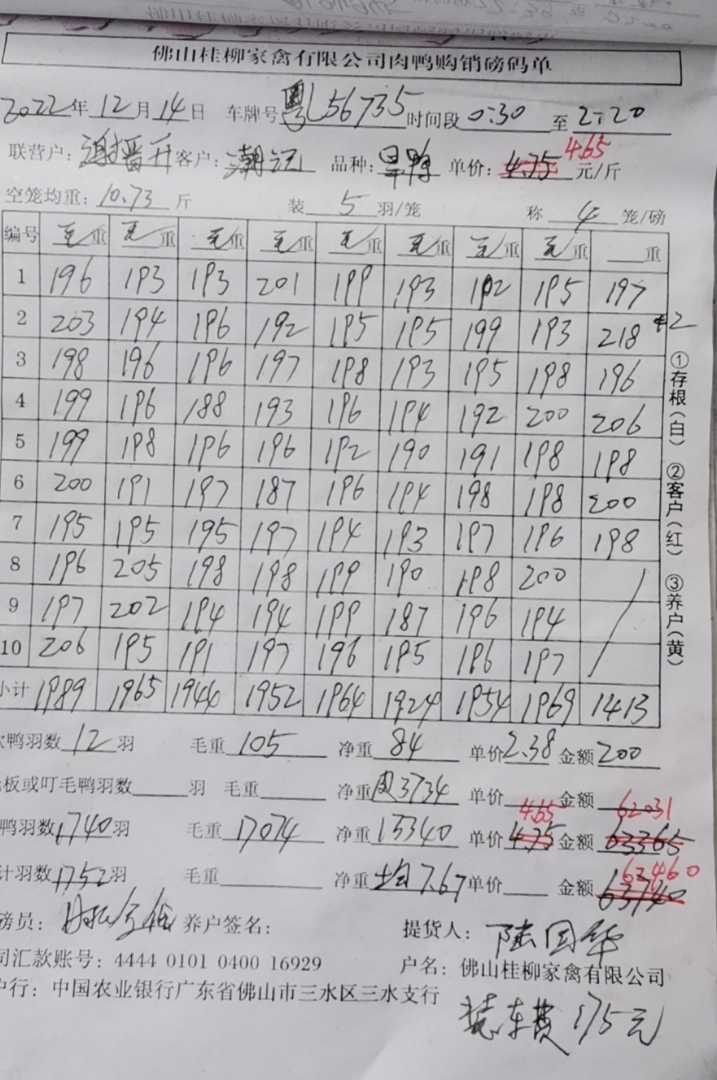 佛山桂柳家禽有限公司肉鸭购销磅码单
2022年12月14日 车牌号粤L56735时间段0:30 至2:20
联营户: 谢摇升 客户: 潮记 品种: 旱鸭 单价: 4.75 4.65 元/斤
空笼均重: 10.73 斤 装 5 羽/笼 称 4 笼/磅
编号 毛重 毛重 毛重 毛重 毛重 毛重 毛重 毛重 重
1 196 193 193 201 199 193 192 195 197
2 203 194 196 192 195 195 199 193 218 +2
3 198 196 196 197 198 193 195 198 196
4 199 196 188 193 196 194 192 200 206
5 199 198 196 196 192 190 191 198 198
6 200 191 197 187 196 194 198 198 200
7 195 195 195 197 194 193 197 196 198
8 196 205 198 198 199 190 198 200 /
9 197 202 194 194 199 187 196 194 /
10 206 195 191 197 196 195 196 197 /
小计 1989 1965 1944 1952 1964 1924 1954 1969 1413
鸭羽数 12 羽 毛重 105 净重 84 单价 2.38 金额 200
板或叮毛鸭羽数 羽 毛重 净重 周3734 单价 金额
鸭羽数 1740 羽 毛重 17074 净重 13340 单价 4.75 4.65 金额 63365 62031
计羽数 1752 羽 毛重 净重 均7.67 单价 金额 63740 62460
磅员: 养户签名: 提货人: 陆国华
司汇款账号: 4444 0101 0400 16929 户名: 佛山桂柳家禽有限公司
户行: 中国农业银行广东省佛山市三水区三水支行
装车费175元
①存根(白) ②客户(红) ③养户(黄)